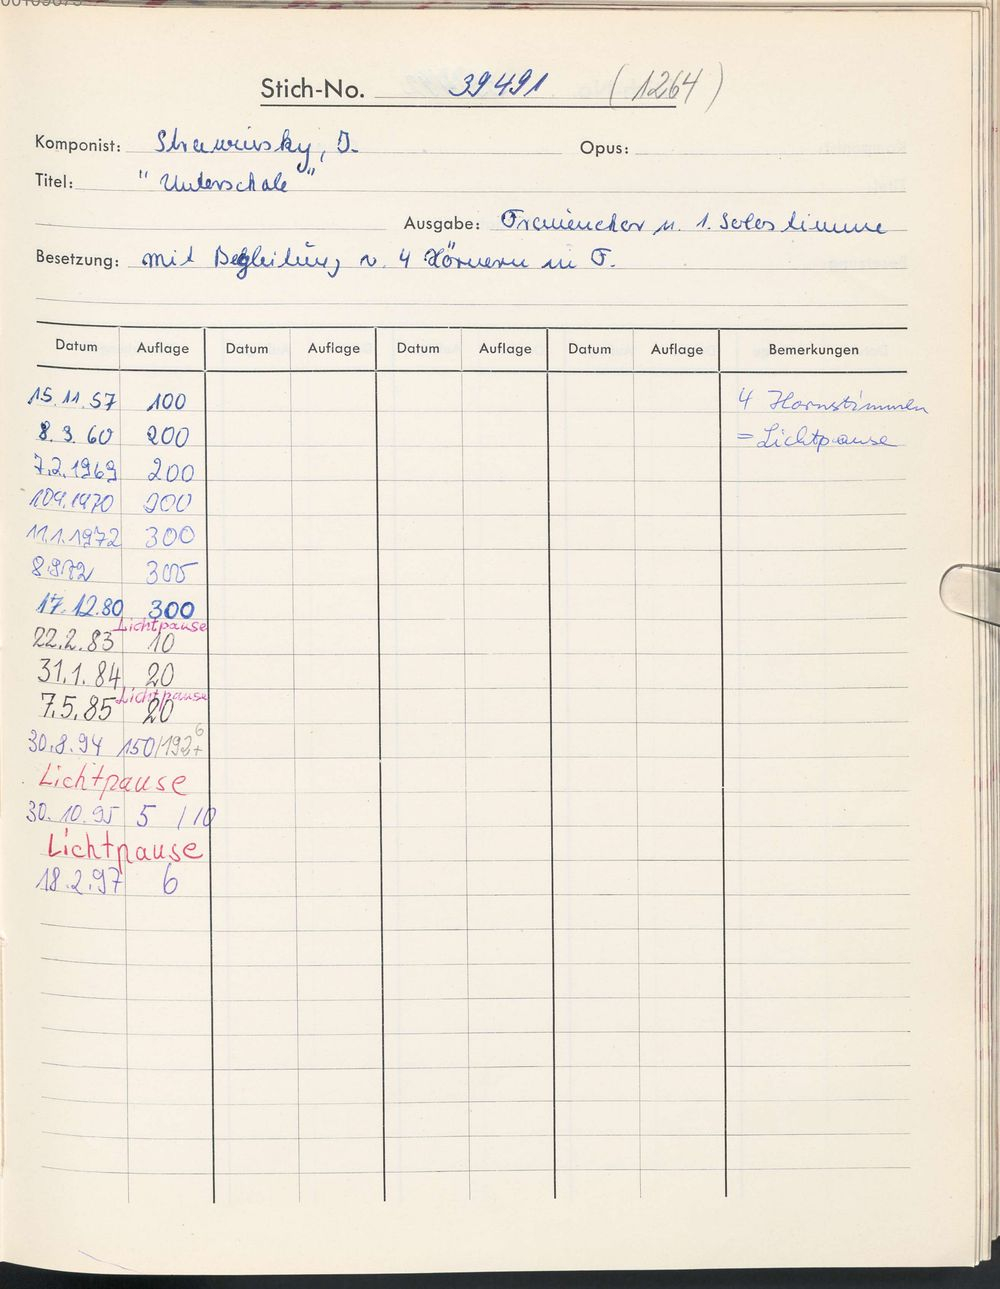 Stich-No. 39491 (1264)
Komponist: Strawinsky, I. Opus:
Titel: "Unterschale"
Ausgabe: Frauenchor u. 1. Solostimme
Besetzung: mit Begleitung v. 4 Hörnern in F.
Datum Auflage Datum Auflage Datum Auflage Datum Auflage Bemerkungen
15.11.57 100 4 Hornstimmen
8.3.60 200 = Lichtpause
7.2.1969 200
1970 200
11.1.1972 300
8.9.72 300
17.12.80 300
Lichtpause
22.2.83 10
31.1.84 20
Lichtpause
7.5.85 20
30.8.94 150/192+6
Lichtpause
30.10.95 5 /10
Lichtpause
18.2.97 6